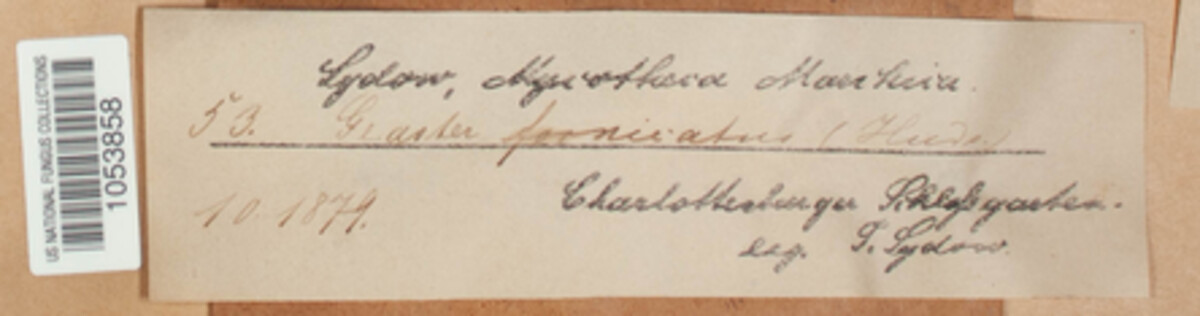 US NATIONAL FUNGUS COLLECTIONS
1053858
Sydow, Mycotheca Marchica.
53. Geaster fornicatus (Huds.)
10. 1879.
Charlottenburger Schloßgarten.
leg. P. Sydow.